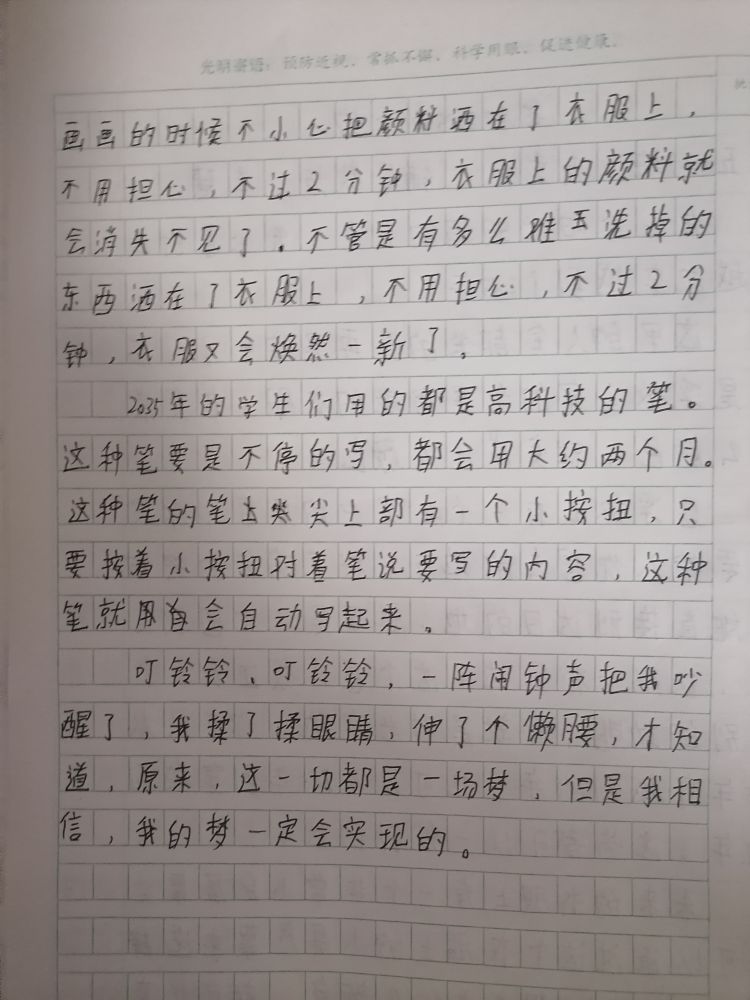 光明寄语：预防近视，常抓不懈，科学用眼，促进健康。
画画的时候不小心把颜料洒在了衣服上，
不用担心，不过2分钟，衣服上的颜料就
会消失不见了。不管是有多么难洗掉的
东西洒在了衣服上，不用担心，不过2分
钟，衣服又会焕然一新了。
2035年的学生们用的都是高科技的笔。
这种笔要是不停的写，都会用大约两个月。
这种笔的笔尖上部有一个小按扭，只
要按着小按扭对着笔说要写的内容，这种
笔就会自动写起来。
叮铃铃，叮铃铃，一阵闹钟声把我吵
醒了，我揉了揉眼睛，伸了个懒腰，才知
道，原来，这一切都是一场梦，但是我相
信，我的梦一定会实现的。